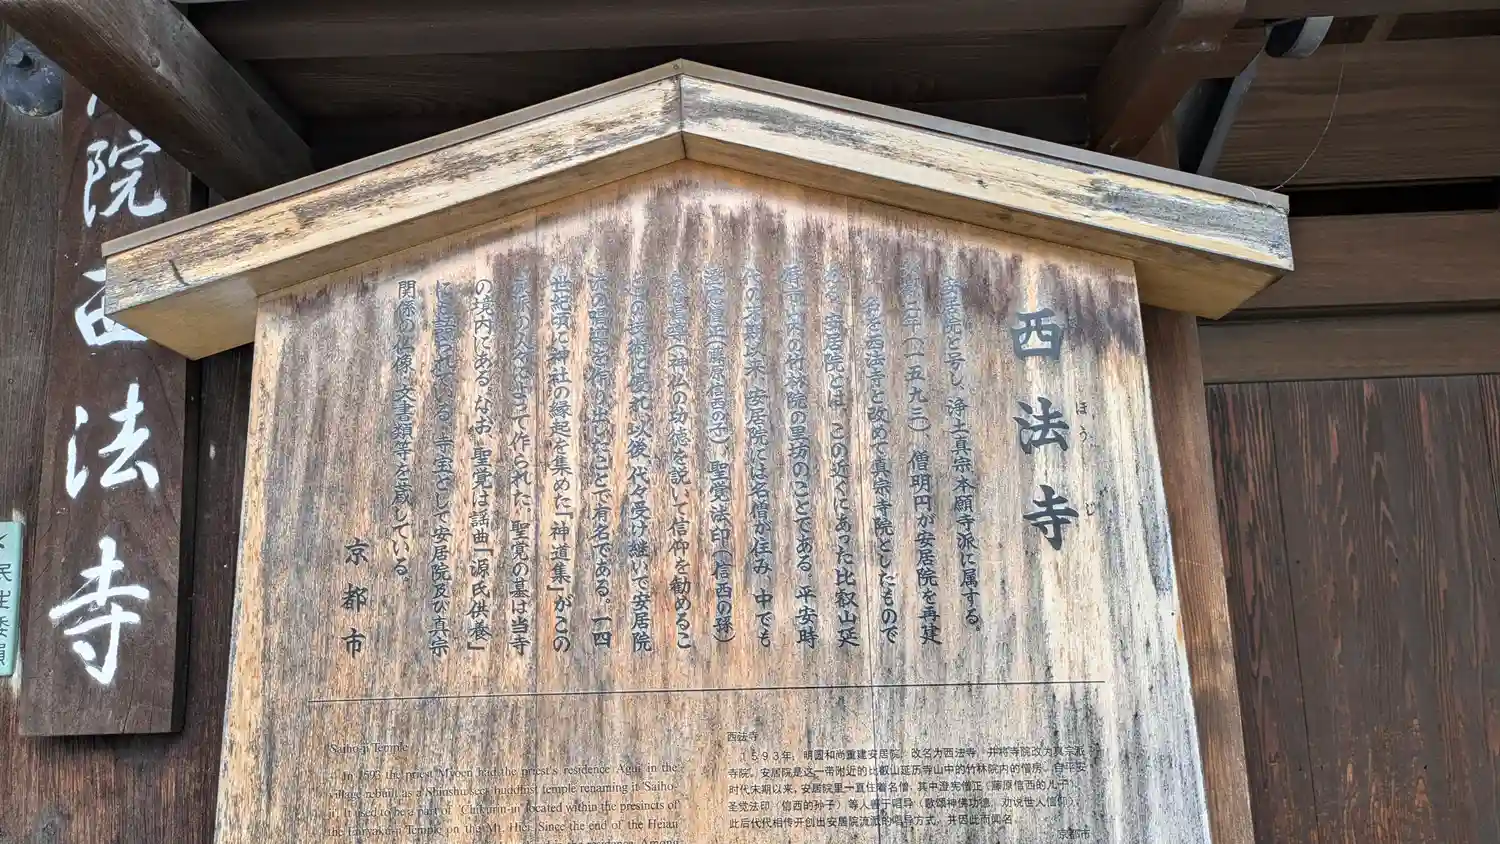 院西法寺
西法寺
ほうじ
安居院と号し、浄土真宗本願寺派に属する。
二年(一五九三)、僧明円が安居院を再建
名を西法寺と改めて真宗寺院としたもので
ある。安居院とは、この近くにあった比叡山延
暦寺山内の竹林院の里坊のことである。平安時
代の末期以来、安居院には名僧が住み、中でも
澄憲僧正(藤原信西の子)、聖覚法印(信西の孫)
は唱導(神仏の功徳を説いて信仰を勧めるこ
と)の技術に優れ、以後、代々受け継いで安居院
流の唱導を作り出したことで有名である。一四
世紀頃に神社の縁起を集めた「神道集」がこの
流派の人々によって作られた。聖覚の墓は当寺
の境内にある。なお、聖覚は謡曲「源氏供養」
にも語られている。寺宝として安居院及び真宗
関係の仏像、文書類等を蔵している。
京都市
Saihō-ji Temple
In 1593 the priest Myōen had the priest's residence Agui in the
village rebuilt as a Shinshū sect buddhist temple renaming it Saihō-
ji. It used to be a part of Chikurin-in located within the precincts of
the Enryaku-ji Temple on the Mt. Hiei. Since the end of the Heian
西法寺
1593年，明圆和尚重建安居院，改名为西法寺，并将寺院改为真宗派
寺院。安居院是这一带附近的比叡山延历寺山中的竹林院内的僧房。自平安
时代末期以来，安居院里一直住着名僧，其中澄宪僧正（藤原信西的儿子）、
圣觉法印（信西的孙子）等人善于唱导（歌颂神佛功德，劝说世人信仰），
此后代代相传开创出安居院流派的唱导方式，并因此而闻名。
京都市
民生委員